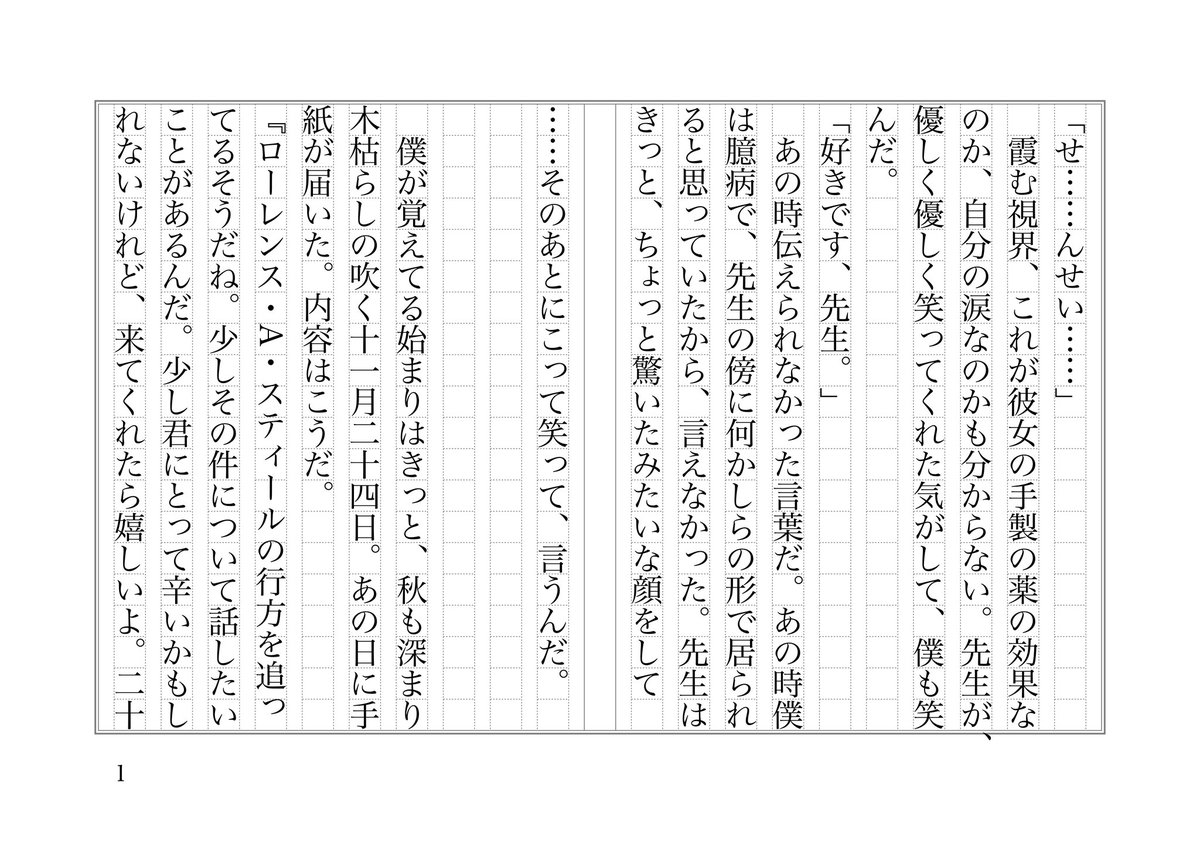 「せ……んせい……」
　霞む視界、これが彼女の手製の薬の効果な
のか、自分の涙なのかも分からない。先生が、
優しく優しく笑ってくれた気がして、僕も笑
んだ。
「好きです、先生。」
　あの時伝えられなかった言葉だ。あの時僕
は臆病で、先生の傍に何かしらの形で居られ
ると思っていたから、言えなかった。先生は
きっと、ちょっと驚いたみたいな顔をして
……そのあとにこって笑って、言うんだ。
　僕が覚えてる始まりはきっと、秋も深まり
木枯らしの吹く十一月二十四日。あの日に手
紙が届いた。内容はこうだ。
『ローレンス・A・スティールの行方を追っ
てるそうだね。少しその件について話したい
ことがあるんだ。少し君にとって辛いかもし
れないけれど、来てくれたら嬉しいよ。二十
1